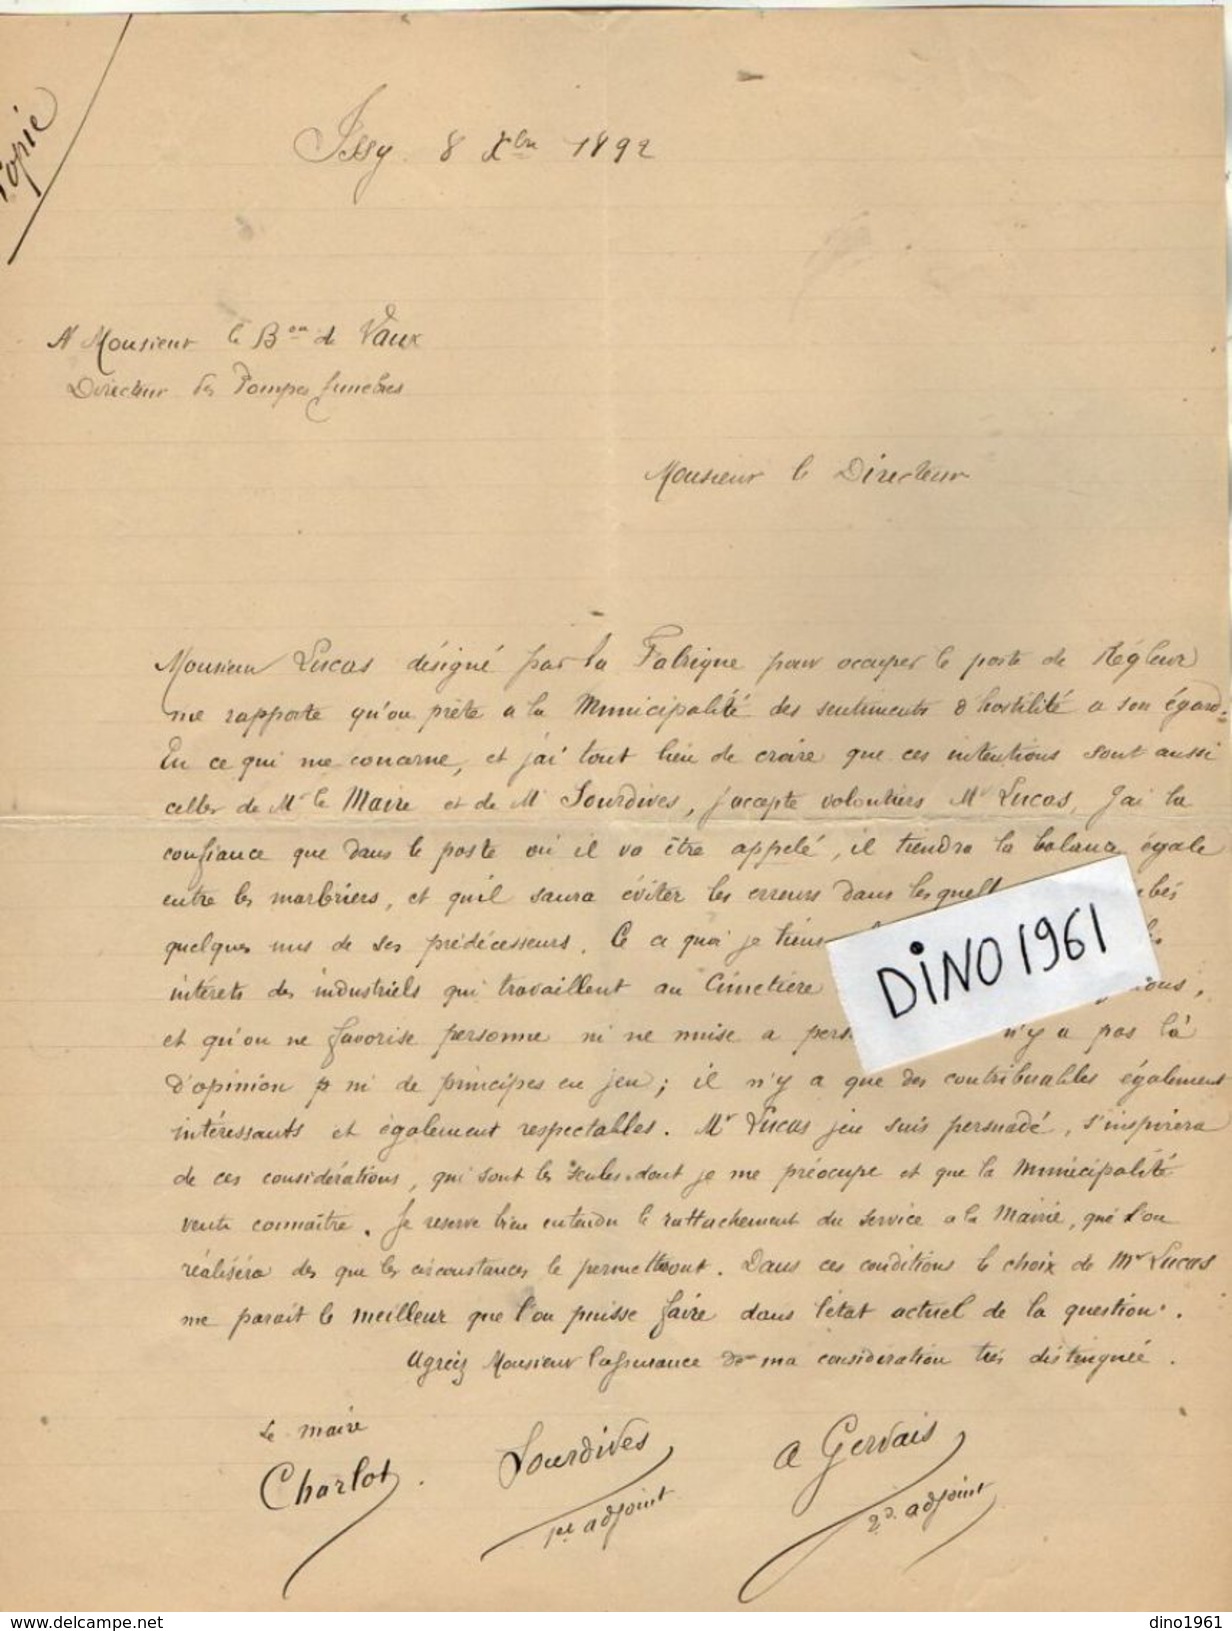 Copie
Issy 8 Xbre 1892
A Monsieur le Bon de Vaux
Directeur des Pompes funèbres
Monsieur le Directeur
Monsieur Lucas désigné par la Fabrique pour occuper le poste de Régleur
me rapporte qu'on prète a la Municipalité des sentiments d'hostilité a son égard.
En ce qui me concerne, et j'ai tout lieu de croire que ces intentions sont aussi
celles de Mr le Maire et de Mr Sourdives, j'accepte volontiers Mr Lucas, j'ai la
confiance que dans le poste où il va être appelé, il tiendra la balance égale
entre les marbriers, et qu'il saura éviter les erreurs dans lesquell bés
quelques uns de ses prédécesseurs. Ce a quoi je tiens
intérets des industriels qui travaillent au Cimetière
et qu'on ne favorise personne ni ne nuise a pers n'y a pas là
d'opinion p ni de principes en jeu; il n'y a que des contribuables également
intéressants et également respectables. Mr Lucas j'en suis persuadé, s'inspirera
de ces considérations, qui sont les seules dont je me préocupe et que la Municipalité
veuille connaître. Je reserve bien entendu le rattachement du service a la Mairie, que l'on
réalisera dès que les circonstances le permettront. Dans ces conditions le choix de Mr Lucas
me parait le meilleur que l'on puisse faire dans l'état actuel de la question.
Agréez Monsieur l'assurance de ma considération très distinguée.
Le maire
Charlot.
Sourdives
1er adjoint
A Gervais
2d. adjoint
DINO 1961
www.delcampe.net
dino1961